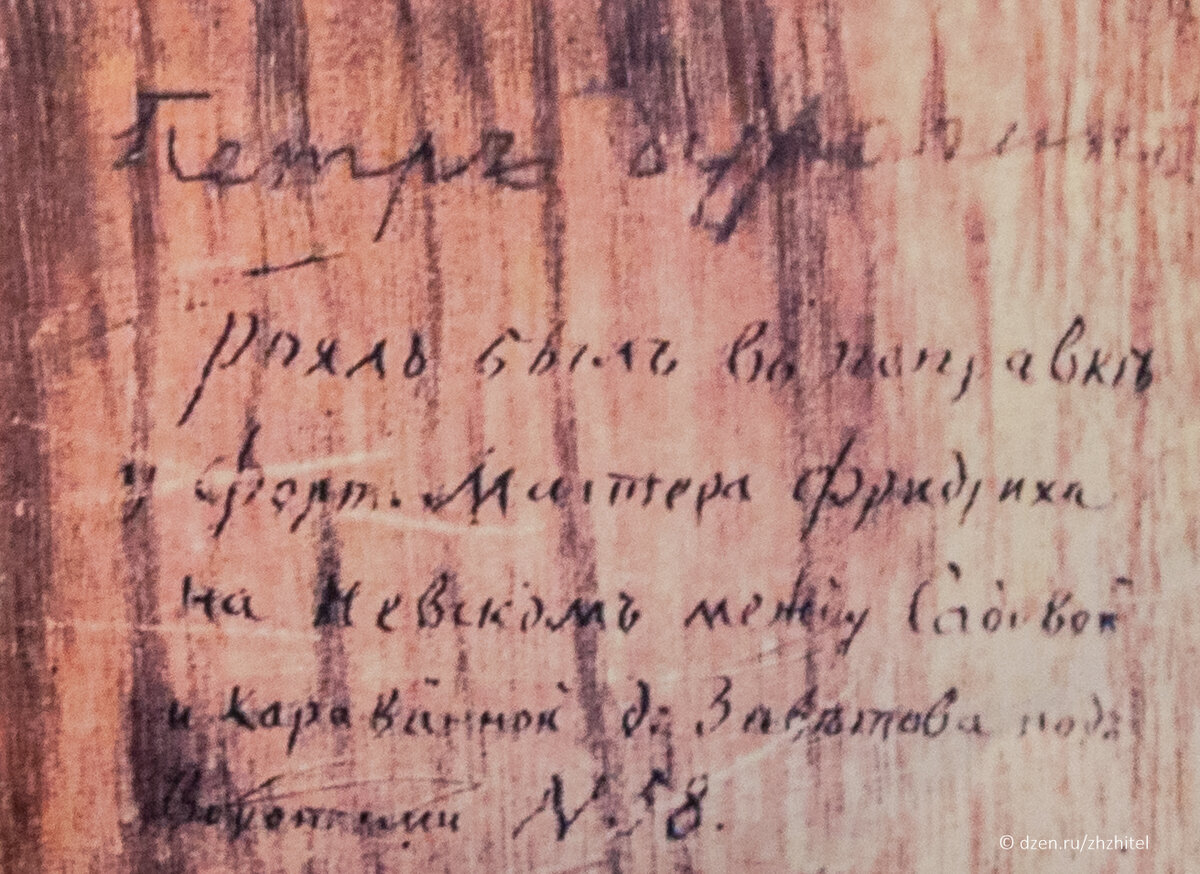 Петръ
Рояль былъ въ поправкѣ
у форт. Мастера Фридриха
на Невскомъ между Садовой
и Караванной д: Завѣтова подъ
Воротами N. 58.
© dzen.ru/zhzhitel